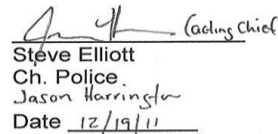 Cading Chief
Steve Elliott
Ch. Police
Jason Harrington
Date 12/19/11